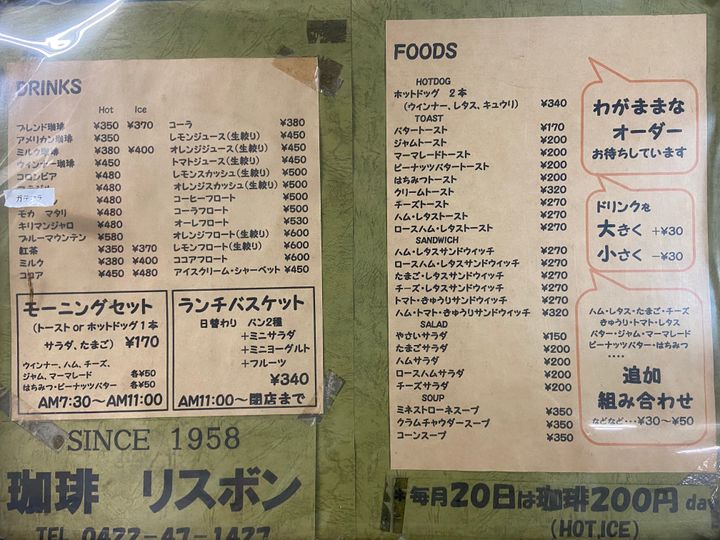 DRINKS
Hot Ice
ブレンド珈琲 ¥350 ¥370
アメリカン珈琲 ¥350
ミルク珈琲 ¥380 ¥400
ウィンナー珈琲 ¥450
コロンビア ¥480
¥480
ガテマラ ¥480
モカ マタリ ¥480
キリマンジャロ ¥480
ブルーマウンテン ¥580
紅茶 ¥350 ¥370
ミルク ¥380 ¥400
ココア ¥450 ¥480
コーラ ¥380
レモンジュース(生絞り) ¥450
オレンジジュース(生絞り) ¥450
トマトジュース(生絞り) ¥450
レモンスカッシュ(生絞り) ¥500
オレンジスカッシュ(生絞り) ¥500
コーヒーフロート ¥500
コーラフロート ¥500
オーレフロート ¥530
オレンジフロート(生絞り) ¥600
レモンフロート(生絞り) ¥600
ココアフロート ¥600
アイスクリーム・シャーベット ¥450
モーニングセット
(トースト or ホットドッグ1本
サラダ、たまご) ¥170
ウインナー、ハム、チーズ、
ジャム、マーマレード 各¥50
はちみつ・ピーナッツバター 各¥50
AM7:30~AM11:00
ランチバスケット
日替わり パン2種
+ミニサラダ
+ミニヨーグルト
+フルーツ
¥340
AM11:00~閉店まで
SINCE 1958
珈琲 リスボン
TEL 0422-47-1427
FOODS
HOTDOG
ホットドッグ 2本
(ウィンナー、レタス、キュウリ) ¥340
TOAST
バタートースト ¥170
ジャムトースト ¥200
マーマレードトースト ¥200
ピーナッツバタートースト ¥200
はちみつトースト ¥200
クリームトースト ¥320
チーズトースト ¥270
ハム・レタストースト ¥270
ロースハム・レタストースト ¥270
SANDWICH
ハム・レタスサンドウイッチ ¥270
ロースハム・レタスサンドウイッチ ¥270
たまご・レタスサンドウイッチ ¥270
チーズ・レタスサンドウイッチ ¥270
トマト・きゅうりサンドウイッチ ¥270
ハム・トマト・きゅうりサンドウイッチ ¥320
SALAD
やさいサラダ ¥150
たまごサラダ ¥200
ハムサラダ ¥200
ロースハムサラダ ¥200
チーズサラダ ¥200
SOUP
ミネストローネスープ ¥350
クラムチャウダースープ ¥350
コーンスープ ¥350
わがままな
オーダー
お待ちしています
ドリンクを
大きく +¥30
小さく -¥30
ハム・レタス・たまご・チーズ
きゅうり・トマト・レタス
バター・ジャム・マーマレード
ピーナッツバター・はちみつ
・・・・
追加
組み合わせ
などなど・・・¥30~¥50
*毎月20日は珈琲200円 da
(HOT,ICE)